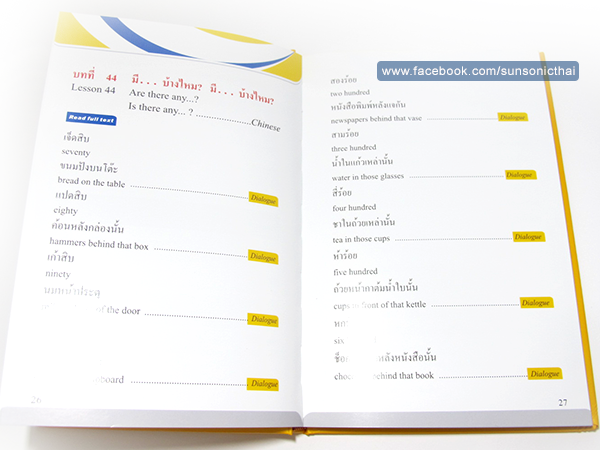 บทที่ 44 มี... บ้างไหม? มี... บ้างไหม?
Lesson 44 Are there any...?
Is there any... ? ..................Chinese
Read full text
เจ็ดสิบ
seventy
ขนมปังบนโต๊ะ
bread on the table Dialogue
แปดสิบ
eighty
ค้อนหลังกล่องนั้น
hammers behind that box Dialogue
เก้าสิบ
ninety
นมหน้าประตู
of the door Dialogue
board Dialogue
26
www.facebook.com/sunsonicthai
สองร้อย
two hundred
หนังสือพิมพ์หลังแจกัน
newspapers behind that vase Dialogue
สามร้อย
three hundred
น้ำในแก้วเหล่านั้น
water in those glasses Dialogue
สี่ร้อย
four hundred
ชาในถ้วยเหล่านั้น
tea in those cups Dialogue
ห้าร้อย
five hundred
ถ้วยหน้ากาต้มน้ำใบนั้น
cups front of that kettle Dialogue
six
หลังหนังสือนั้น
behind that book Dialogue
27